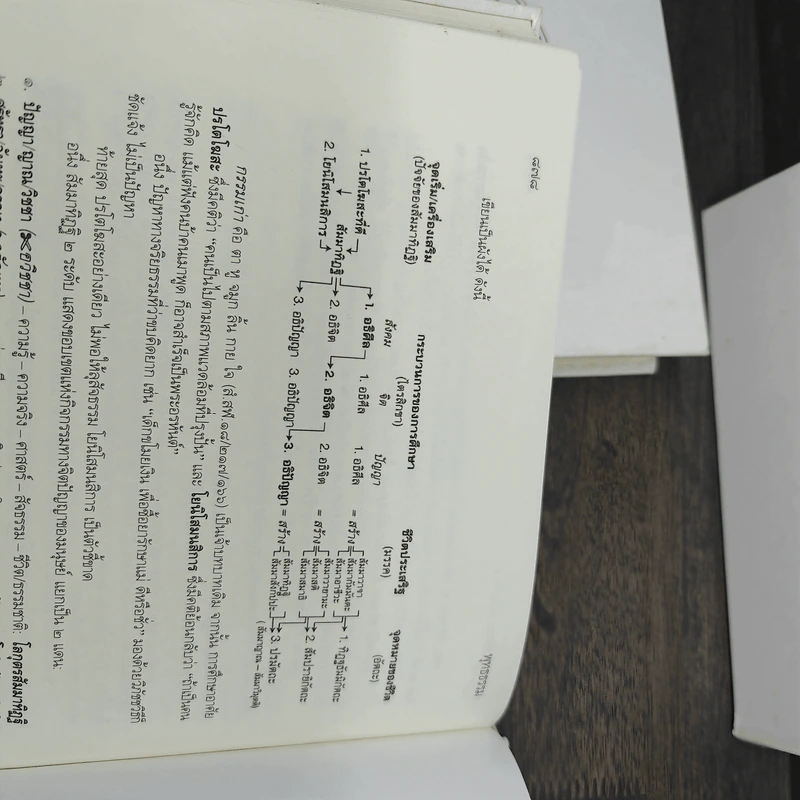 ๘๗๘
พุทธธรรม
เขียนเป็นผังได้ ดังนี้
จุดเริ่ม/เครื่องเสริม กระบวนการของการศึกษา ชีวิตประเสริฐ จุดหมายของชีวิต
(ปัจจัยของสัมมาทิฏฐิ) (ไตรสิกขา) (มรรค) (อัตถะ)
สังคม จิต ปัญญา
1. ปรโตโฆสะที่ดี 1. อธิศีล 1. อธิศีล 1. อธิศีล = สร้าง สัมมาวาจา สัมมากัมมันตะ สัมมาอาชีวะ 1. ทิฏฐธัมมิกัตถะ
สัมมาทิฏฐิ 2. อธิจิต 2. อธิจิต 2. อธิจิต = สร้าง สัมมาวายามะ สัมมาสติ สัมมาสมาธิ 2. สัมปรายิกัตถะ
2. โยนิโสมนสิการ 3. อธิปัญญา 3. อธิปัญญา 3. อธิปัญญา = สร้าง สัมมาทิฏฐิ สัมมาสังกัปปะ 3. ปรมัตถะ
(สัมมาญาณ – สัมมาวิมุตติ)
กรรมเก่า คือ ตา หู จมูก ลิ้น กาย ใจ (สํ.สฬ.๑๘/๒๑๗/๑๖๖) เป็นเจ้าบทบาทเดิม จากนั้น การศึกษาอาศัย
ปรโตโฆสะ ซึ่งมีคติว่า “คนเป็นไปตามสภาพแวดล้อมที่ปรุงปั้น” และ โยนิโสมนสิการ ซึ่งมีคติย้อนกลับว่า “ถ้าเป็นคน
รู้จักคิด แม้แต่ฟังคนบ้าคนเมาพูด ก็อาจสำเร็จเป็นพระอรหันต์”
อนึ่ง ปัญหาทางจริยธรรมที่ว่าขบคิดยาก เช่น “เด็กขโมยเงิน เพื่อซื้อยารักษาแม่ ดีหรือชั่ว” มองด้วยวิภัชชวิธีก็
ชัดแจ้ง ไม่เป็นปัญหา
ท้ายสุด ปรโตโฆสะอย่างเดียว ไม่พอให้ลุสัจธรรม โยนิโสมนสิการ เป็นตัวชี้ขาด
อนึ่ง สัมมาทิฏฐิ ๒ ระดับ แสดงขอบเขตแห่งกิจกรรมทางจิตปัญญาของมนุษย์ แยกเป็น ๒ แดน:
๑. ปัญญา/ญาณ/วิชชา (✂อวิชชา) – ความรู้ – ความจริง – ศาสตร์ – สัจธรรม – ชีวิต/ธรรมชาติ: โลกุตรสัมมาทิฏฐิ